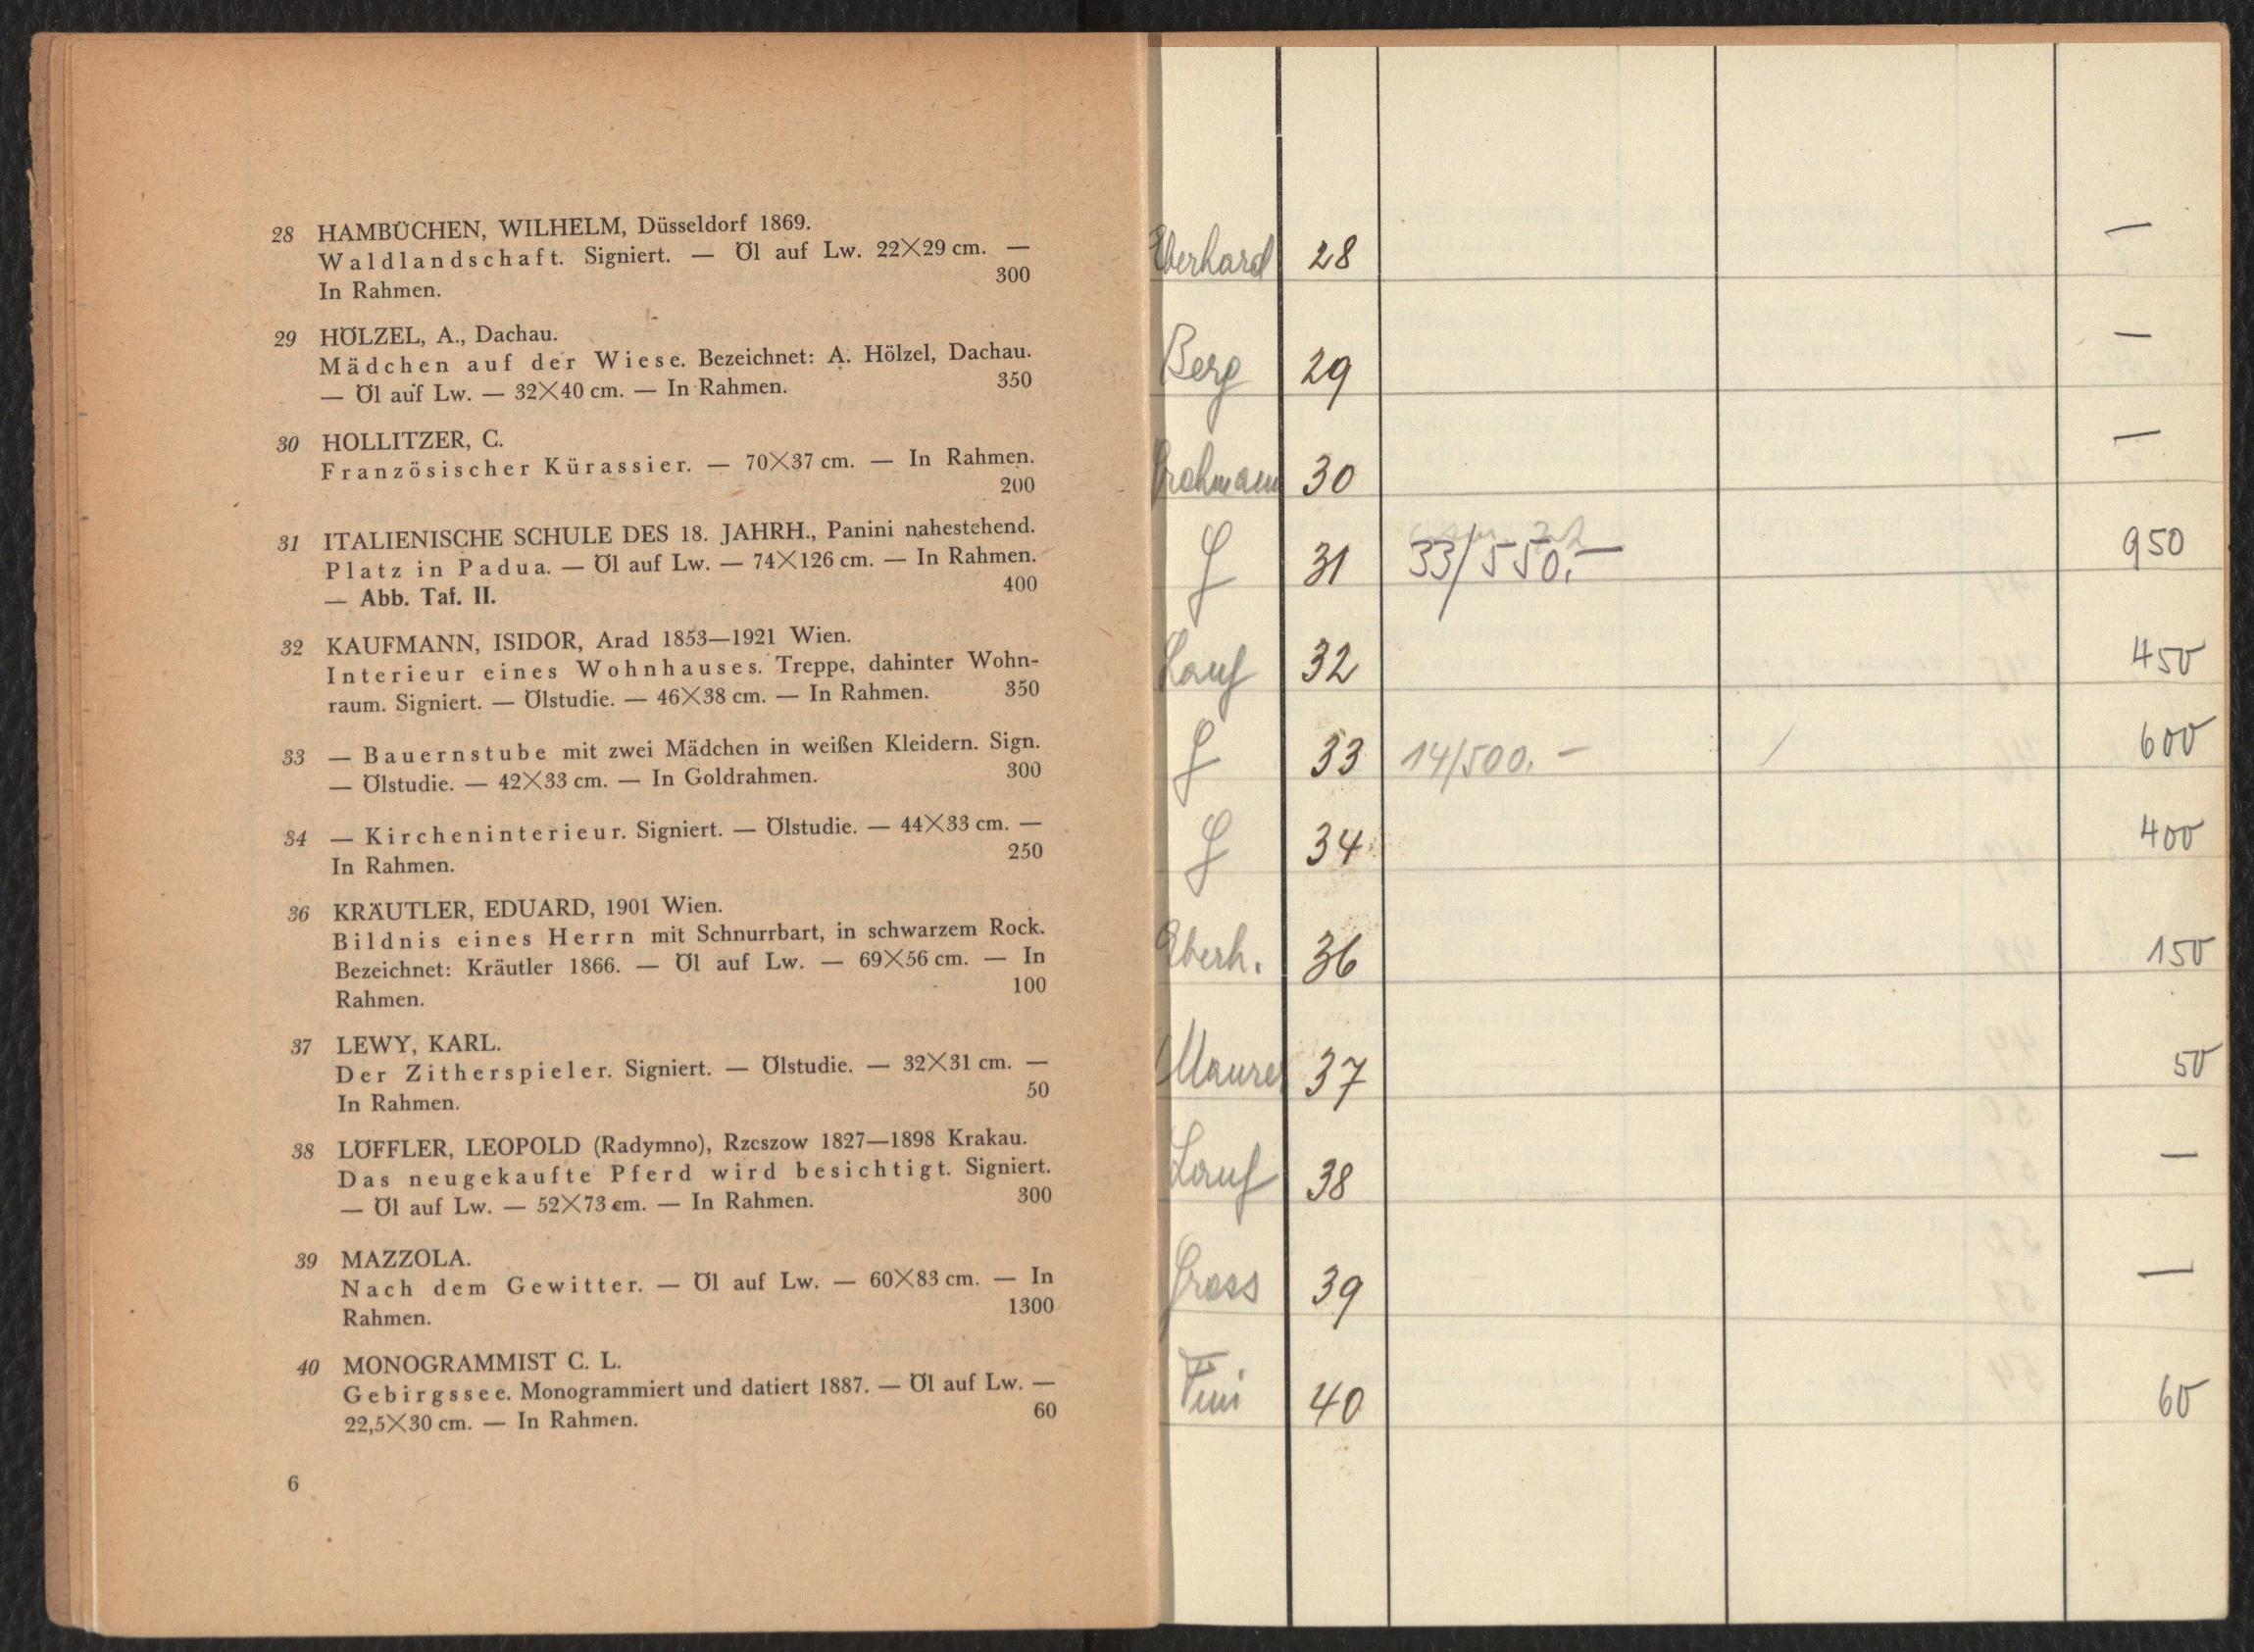 28 HAMBÜCHEN, WILHELM, Düsseldorf 1869.
Waldlandschaft. Signiert. — Öl auf Lw. 22×29 cm. —
In Rahmen. 300
29 HÖLZEL, A., Dachau.
Mädchen auf der Wiese. Bezeichnet: A. Hölzel, Dachau.
— Öl auf Lw. — 32×40 cm. — In Rahmen. 350
30 HOLLITZER, C.
Französischer Kürassier. — 70×37 cm. — In Rahmen.
200
31 ITALIENISCHE SCHULE DES 18. JAHRH., Panini nahestehend.
Platz in Padua. — Öl auf Lw. — 74×126 cm. — In Rahmen.
— Abb. Taf. II. 400
32 KAUFMANN, ISIDOR, Arad 1853—1921 Wien.
Interieur eines Wohnhauses. Treppe, dahinter Wohn-
raum. Signiert. — Ölstudie. — 46×38 cm. — In Rahmen. 350
33 — Bauernstube mit zwei Mädchen in weißen Kleidern. Sign.
— Ölstudie. — 42×33 cm. — In Goldrahmen. 300
34 — Kircheninterieur. Signiert. — Ölstudie. — 44×33 cm. —
In Rahmen. 250
36 KRÄUTLER, EDUARD, 1901 Wien.
Bildnis eines Herrn mit Schnurrbart, in schwarzem Rock.
Bezeichnet: Kräutler 1866. — Öl auf Lw. — 69×56 cm. — In
Rahmen. 100
37 LEWY, KARL.
Der Zitherspieler. Signiert. — Ölstudie. — 32×31 cm. —
In Rahmen. 50
38 LÖFFLER, LEOPOLD (Radymno), Rzeszow 1827—1898 Krakau.
Das neugekaufte Pferd wird besichtigt. Signiert.
— Öl auf Lw. — 52×73 cm. — In Rahmen. 300
39 MAZZOLA.
Nach dem Gewitter. — Öl auf Lw. — 60×83 cm. — In
Rahmen. 1300
40 MONOGRAMMIST C. L.
Gebirgssee. Monogrammiert und datiert 1887. — Öl auf Lw. —
22,5×30 cm. — In Rahmen. 60
6
Eberhard 28 —
Berg 29 —
30 —
31 33/550.— 950
32 450
33 14/500.— / 600
34 400
Eberh. 36 150
Maurer 37 50
38 —
39 —
40 60